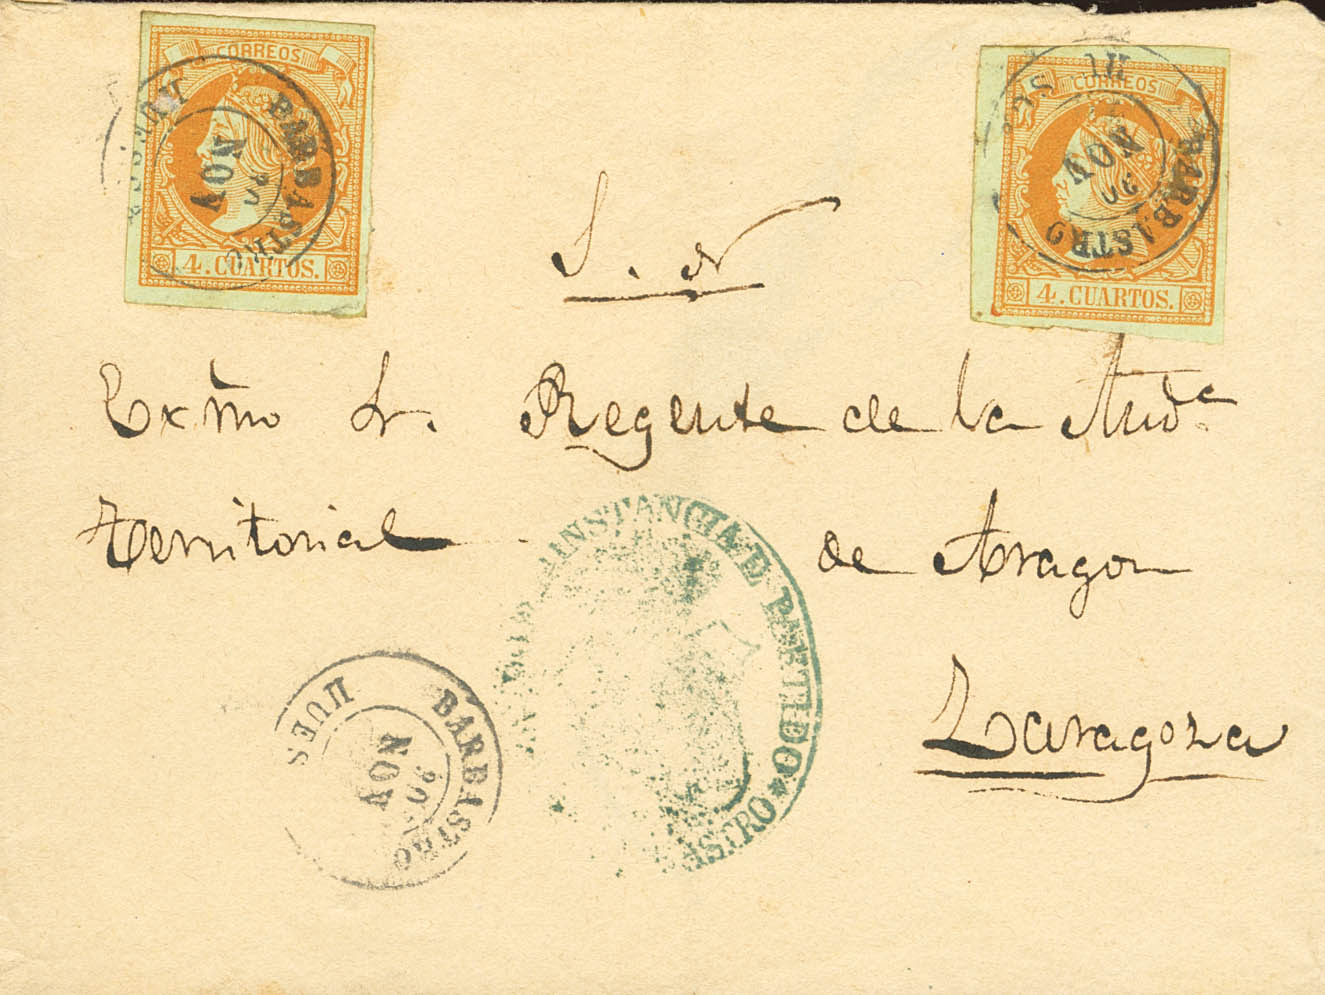 CORREOS
BARBASTRO
NOV
4. CUARTOS.
CORREOS
BARBASTRO
NOV
4. CUARTOS.
S. N
Exm̃o Sr. Regente de la Audª
Territorial de Aragon
Zaragoza
INSTANCIA D PARTIDO
ASTRO
BARBASTRO
HUES
NOV